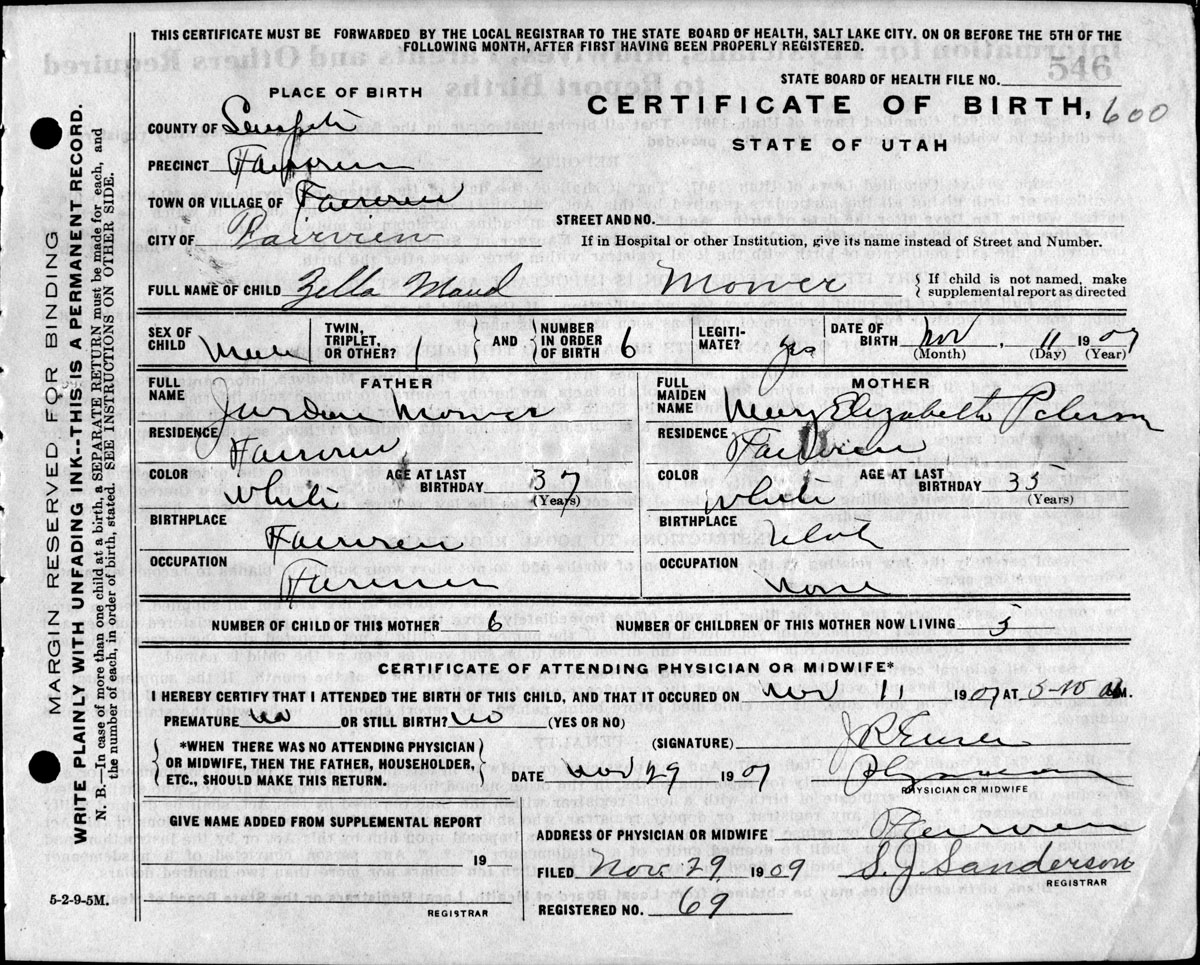 THIS CERTIFICATE MUST BE FORWARDED BY THE LOCAL REGISTRAR TO THE STATE BOARD OF HEALTH, SALT LAKE CITY. ON OR BEFORE THE 5TH OF THE
FOLLOWING MONTH, AFTER FIRST HAVING BEEN PROPERLY REGISTERED.
546
STATE BOARD OF HEALTH FILE NO.
PLACE OF BIRTH
CERTIFICATE OF BIRTH, 600
STATE OF UTAH
COUNTY OF
PRECINCT Fairview
TOWN OR VILLAGE OF Fairview
STREET AND NO.
CITY OF Fairview
If in Hospital or other Institution, give its name instead of Street and Number.
FULL NAME OF CHILD Zella Maud Mower
{ If child is not named, make
supplemental report as directed
SEX OF CHILD
TWIN, TRIPLET, OR OTHER?
AND
NUMBER IN ORDER OF BIRTH 6
LEGITIMATE? yes
DATE OF BIRTH Nov, 11 1909
(Month) (Day) (Year)
FATHER
FULL NAME Jurdan Mower
RESIDENCE Fairview
COLOR White
AGE AT LAST BIRTHDAY 37
(Years)
BIRTHPLACE Fairview
OCCUPATION Farmer
MOTHER
FULL MAIDEN NAME Mary Elizabeth
RESIDENCE Fairview
COLOR White
AGE AT LAST BIRTHDAY 35
(Years)
BIRTHPLACE Utah
OCCUPATION None
NUMBER OF CHILD OF THIS MOTHER 6
NUMBER OF CHILDREN OF THIS MOTHER NOW LIVING 5
CERTIFICATE OF ATTENDING PHYSICIAN OR MIDWIFE*
I HEREBY CERTIFY THAT I ATTENDED THE BIRTH OF THIS CHILD, AND THAT IT OCURED ON Nov 11 1909 AT M.
PREMATURE No OR STILL BIRTH? No (YES OR NO)
{ *WHEN THERE WAS NO ATTENDING PHYSICIAN
OR MIDWIFE, THEN THE FATHER, HOUSEHOLDER,
ETC., SHOULD MAKE THIS RETURN. }
(SIGNATURE)
DATE Nov 29 1909 Physician
PHYSICIAN OR MIDWIFE
GIVE NAME ADDED FROM SUPPLEMENTAL REPORT
19
REGISTRAR
ADDRESS OF PHYSICIAN OR MIDWIFE Fairview
FILED Nov. 29 1909 S. J. Sanderson
REGISTRAR
REGISTERED NO. 69
5-2-9-5M.
MARGIN RESERVED FOR BINDING
WRITE PLAINLY WITH UNFADING INK--THIS IS A PERMANENT RECORD.
N. B.—In case of more than one child at a birth, a SEPARATE RETURN must be made for each, and
the number of each, in order of birth, stated. SEE INSTRUCTIONS ON OTHER SIDE.